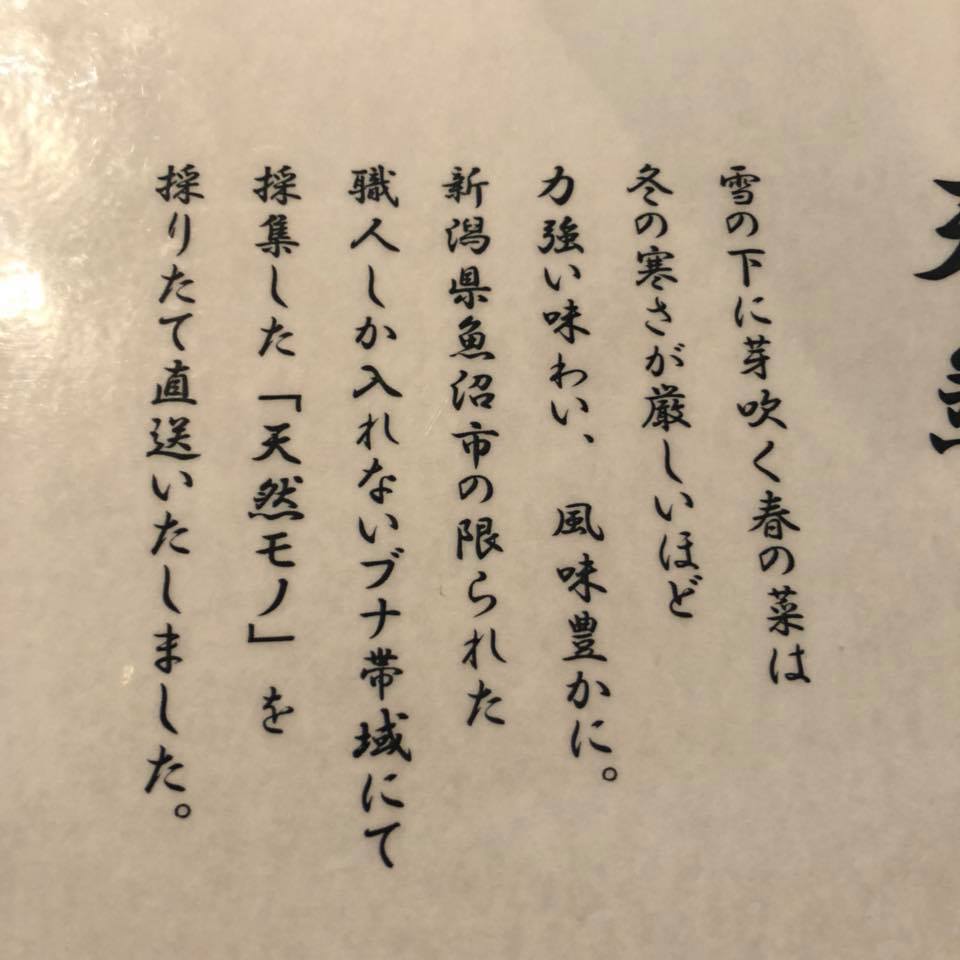 雪の下に芽吹く春の菜は
冬の寒さが厳しいほど
力強い味わい、風味豊かに。
新潟県魚沼市の限られた
職人しか入れないブナ帯域にて
採集した「天然モノ」を
採りたて直送いたしました。